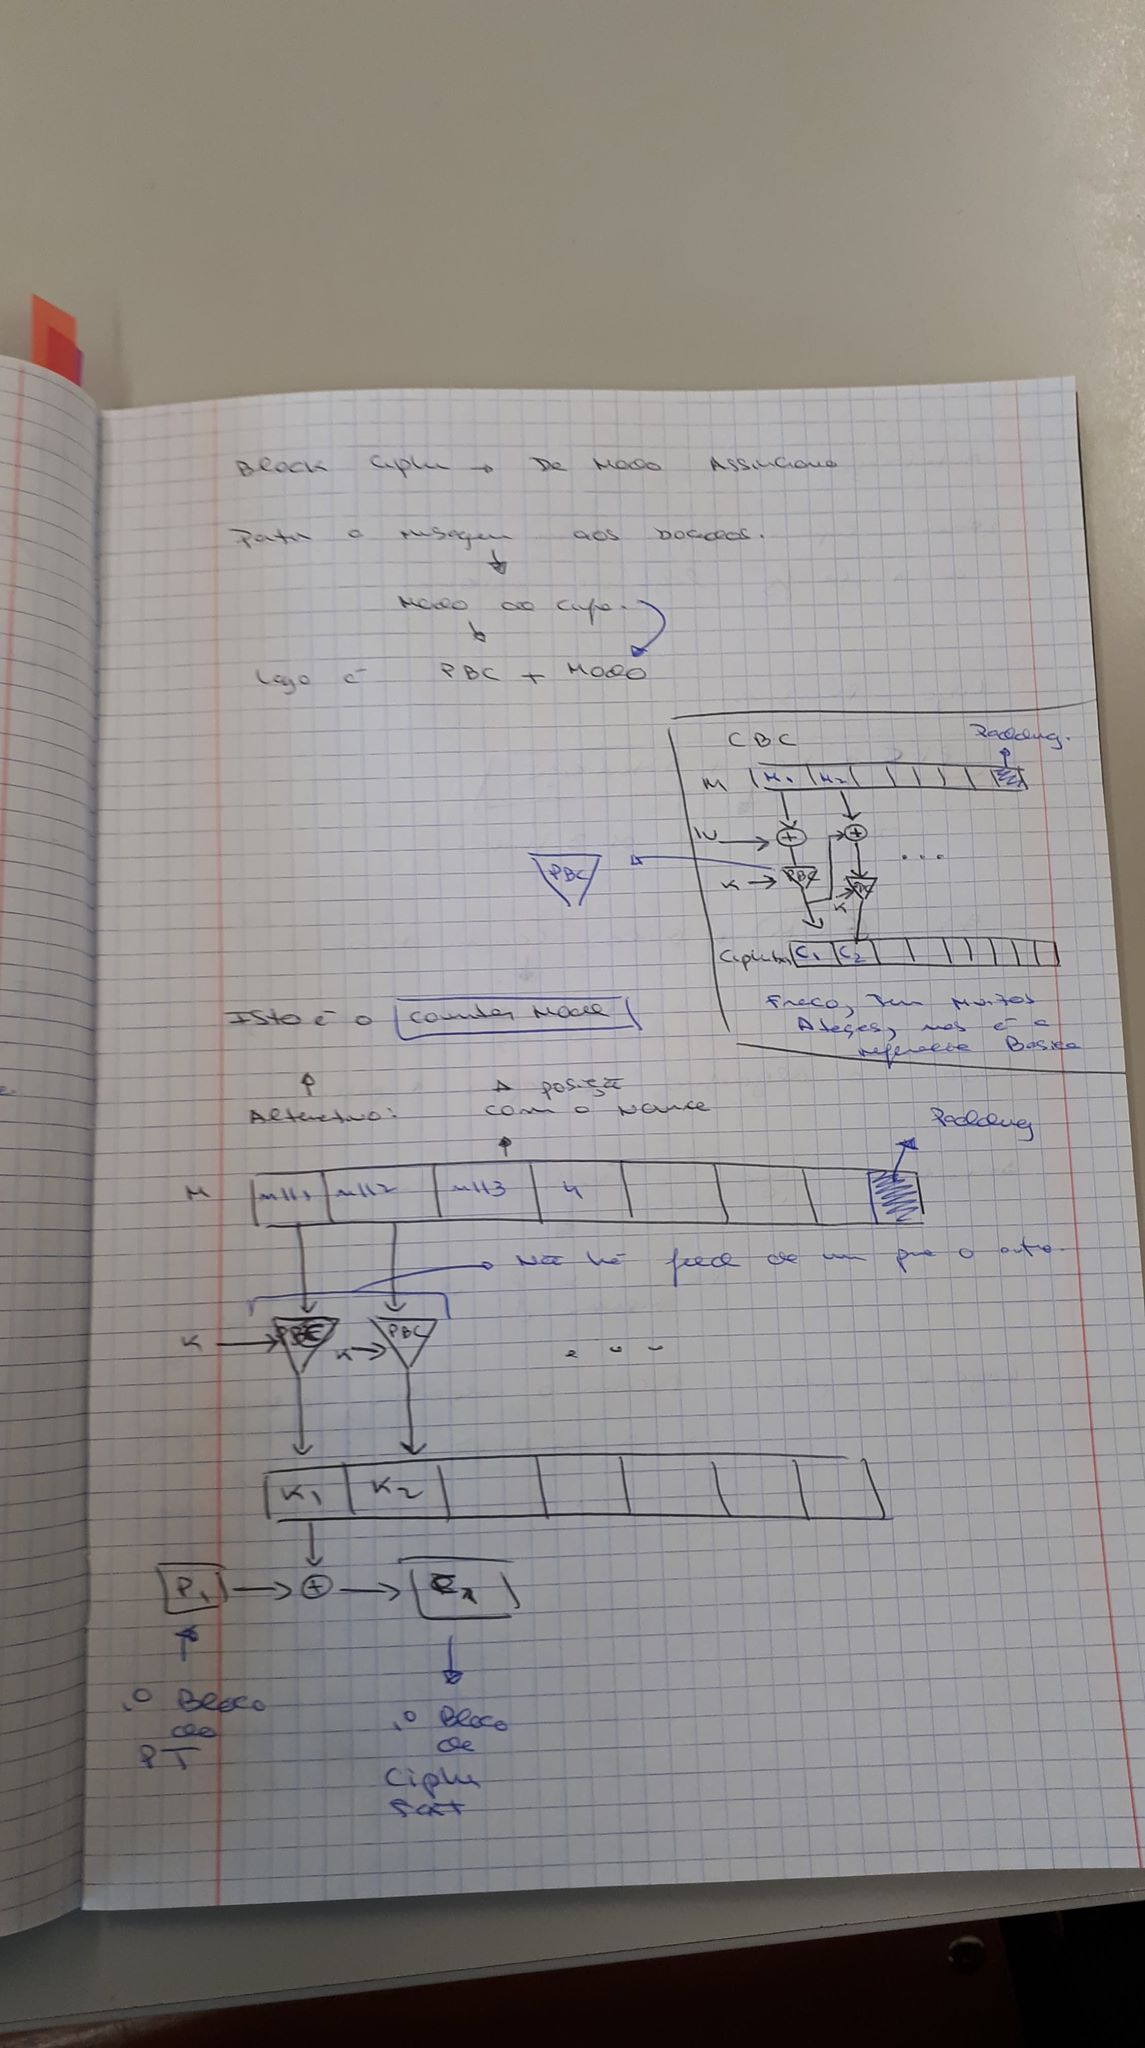 Block Ciphe → De Modo Assincrono
Partir a mensagem aos bocados.
Modo de Cifra.
Logo é PBC + Modo
CBC
Padding.
M M1 M2
IV
PBC
K → PBC
K
C1 C2
...
Fraco, Tem Muitos
Ataques, mas é a
referencia Basica
Isto é o Counter Mode
Alternativo:
A posição
com o Nonce
Padding
M n||1 n||2 n||3 4
Não há feed de um para o outro.
K → PBC K → PBC ...
K1 K2
P1 → ⊕ → C1
1º Bloco
do
PT
1º Bloco
de
Ciphe
Text